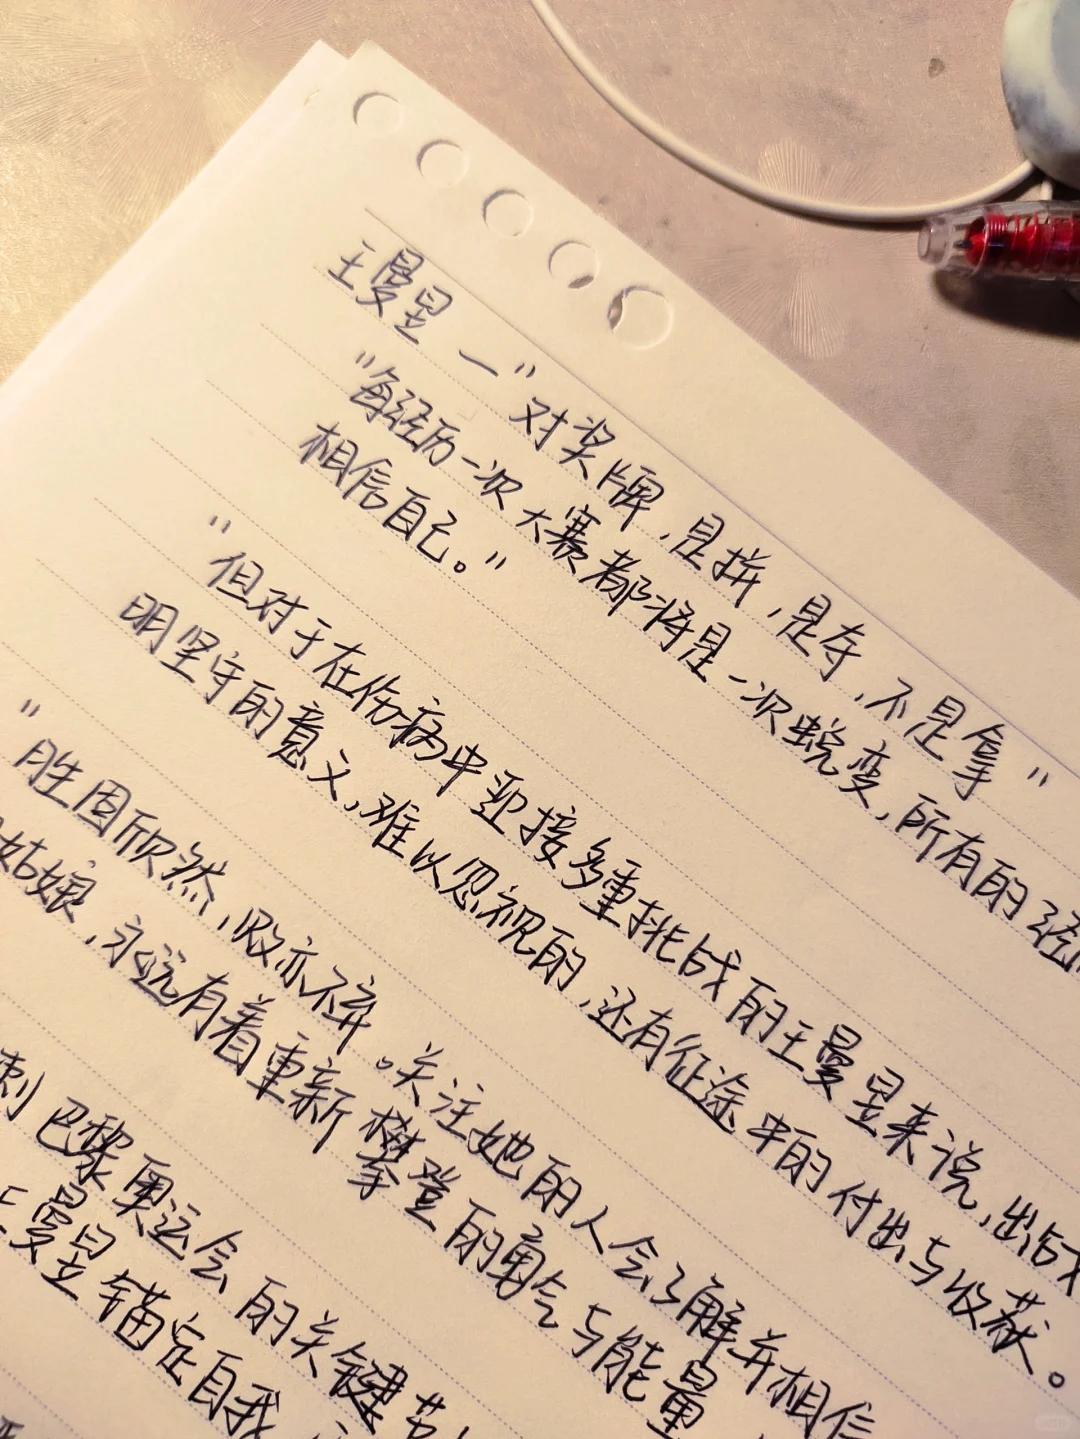 王曼昱一"对奖牌,是拼,是夺,不是拿"
"每经历一次大赛都将是一次蜕变,所有的经
相信自己。"
"但对于在伤病中迎接多重挑战的王曼昱来说,出战
明坚守的意义,难以忽视的,还有征途中的付出与收获。
"胜固欣然,败亦不弃。关注她的人会了解并相信
姑娘,永远有着重新攀登的勇气与能量
刺巴黎奥运会的关键节
王曼昱锚定自我